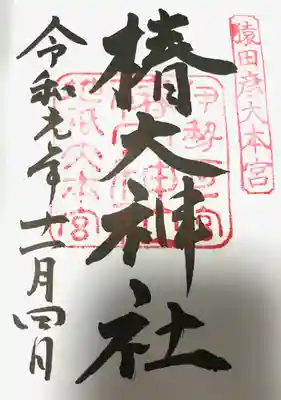 猿田彦大本宮
椿大神社
伊勢一宮
地祇大本宮
令和元年十一月四日